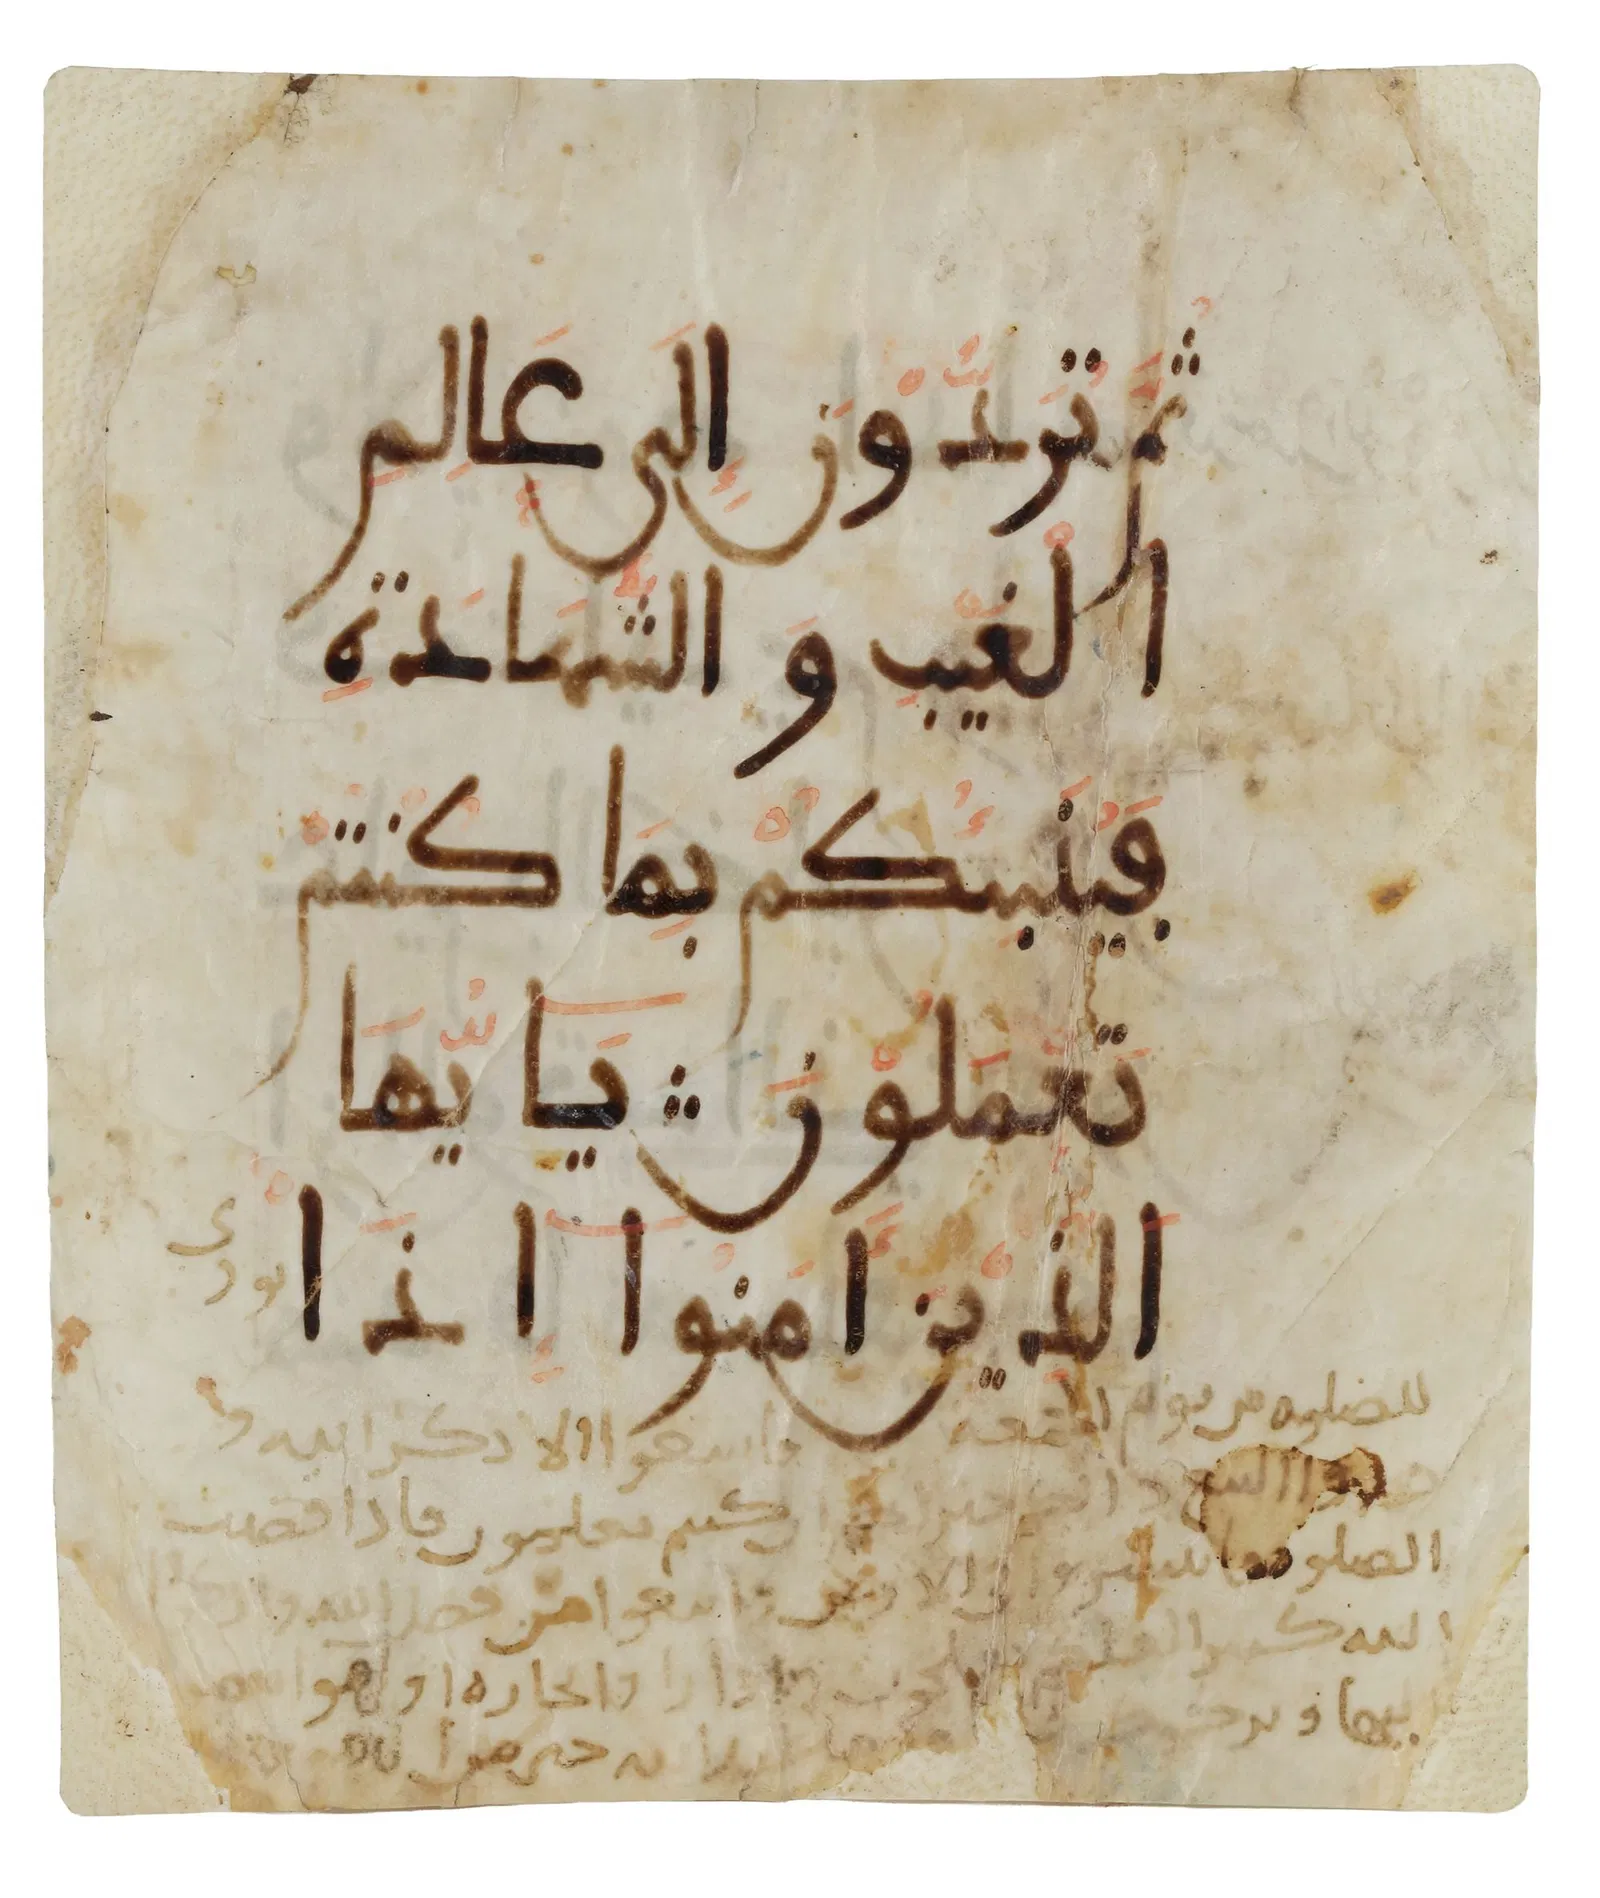 ثُمَّ تُرَدُّونَ إِلَى عَالِمِ
الْغَيْبِ وَالشَّهَادَةِ
فَيُنَبِّئُكُمْ بِمَا كُنْتُمْ
تَعْمَلُونَ يَا أَيُّهَا
الَّذِينَ آمَنُوا إِذَا
نودى
للصلوه من يوم الجمعة فاسعوا الا ذكر الله و
ذروا البيع ذالكم خير لكم ان كنتم تعلمون فاذا قضيت
الصلوه فانتشروا في الارض وابتغوا من فضل الله واذكروا
الله كثيرا لعلكم تفلحون واذا راوا تجاره او لهوا
اليها وتركوك